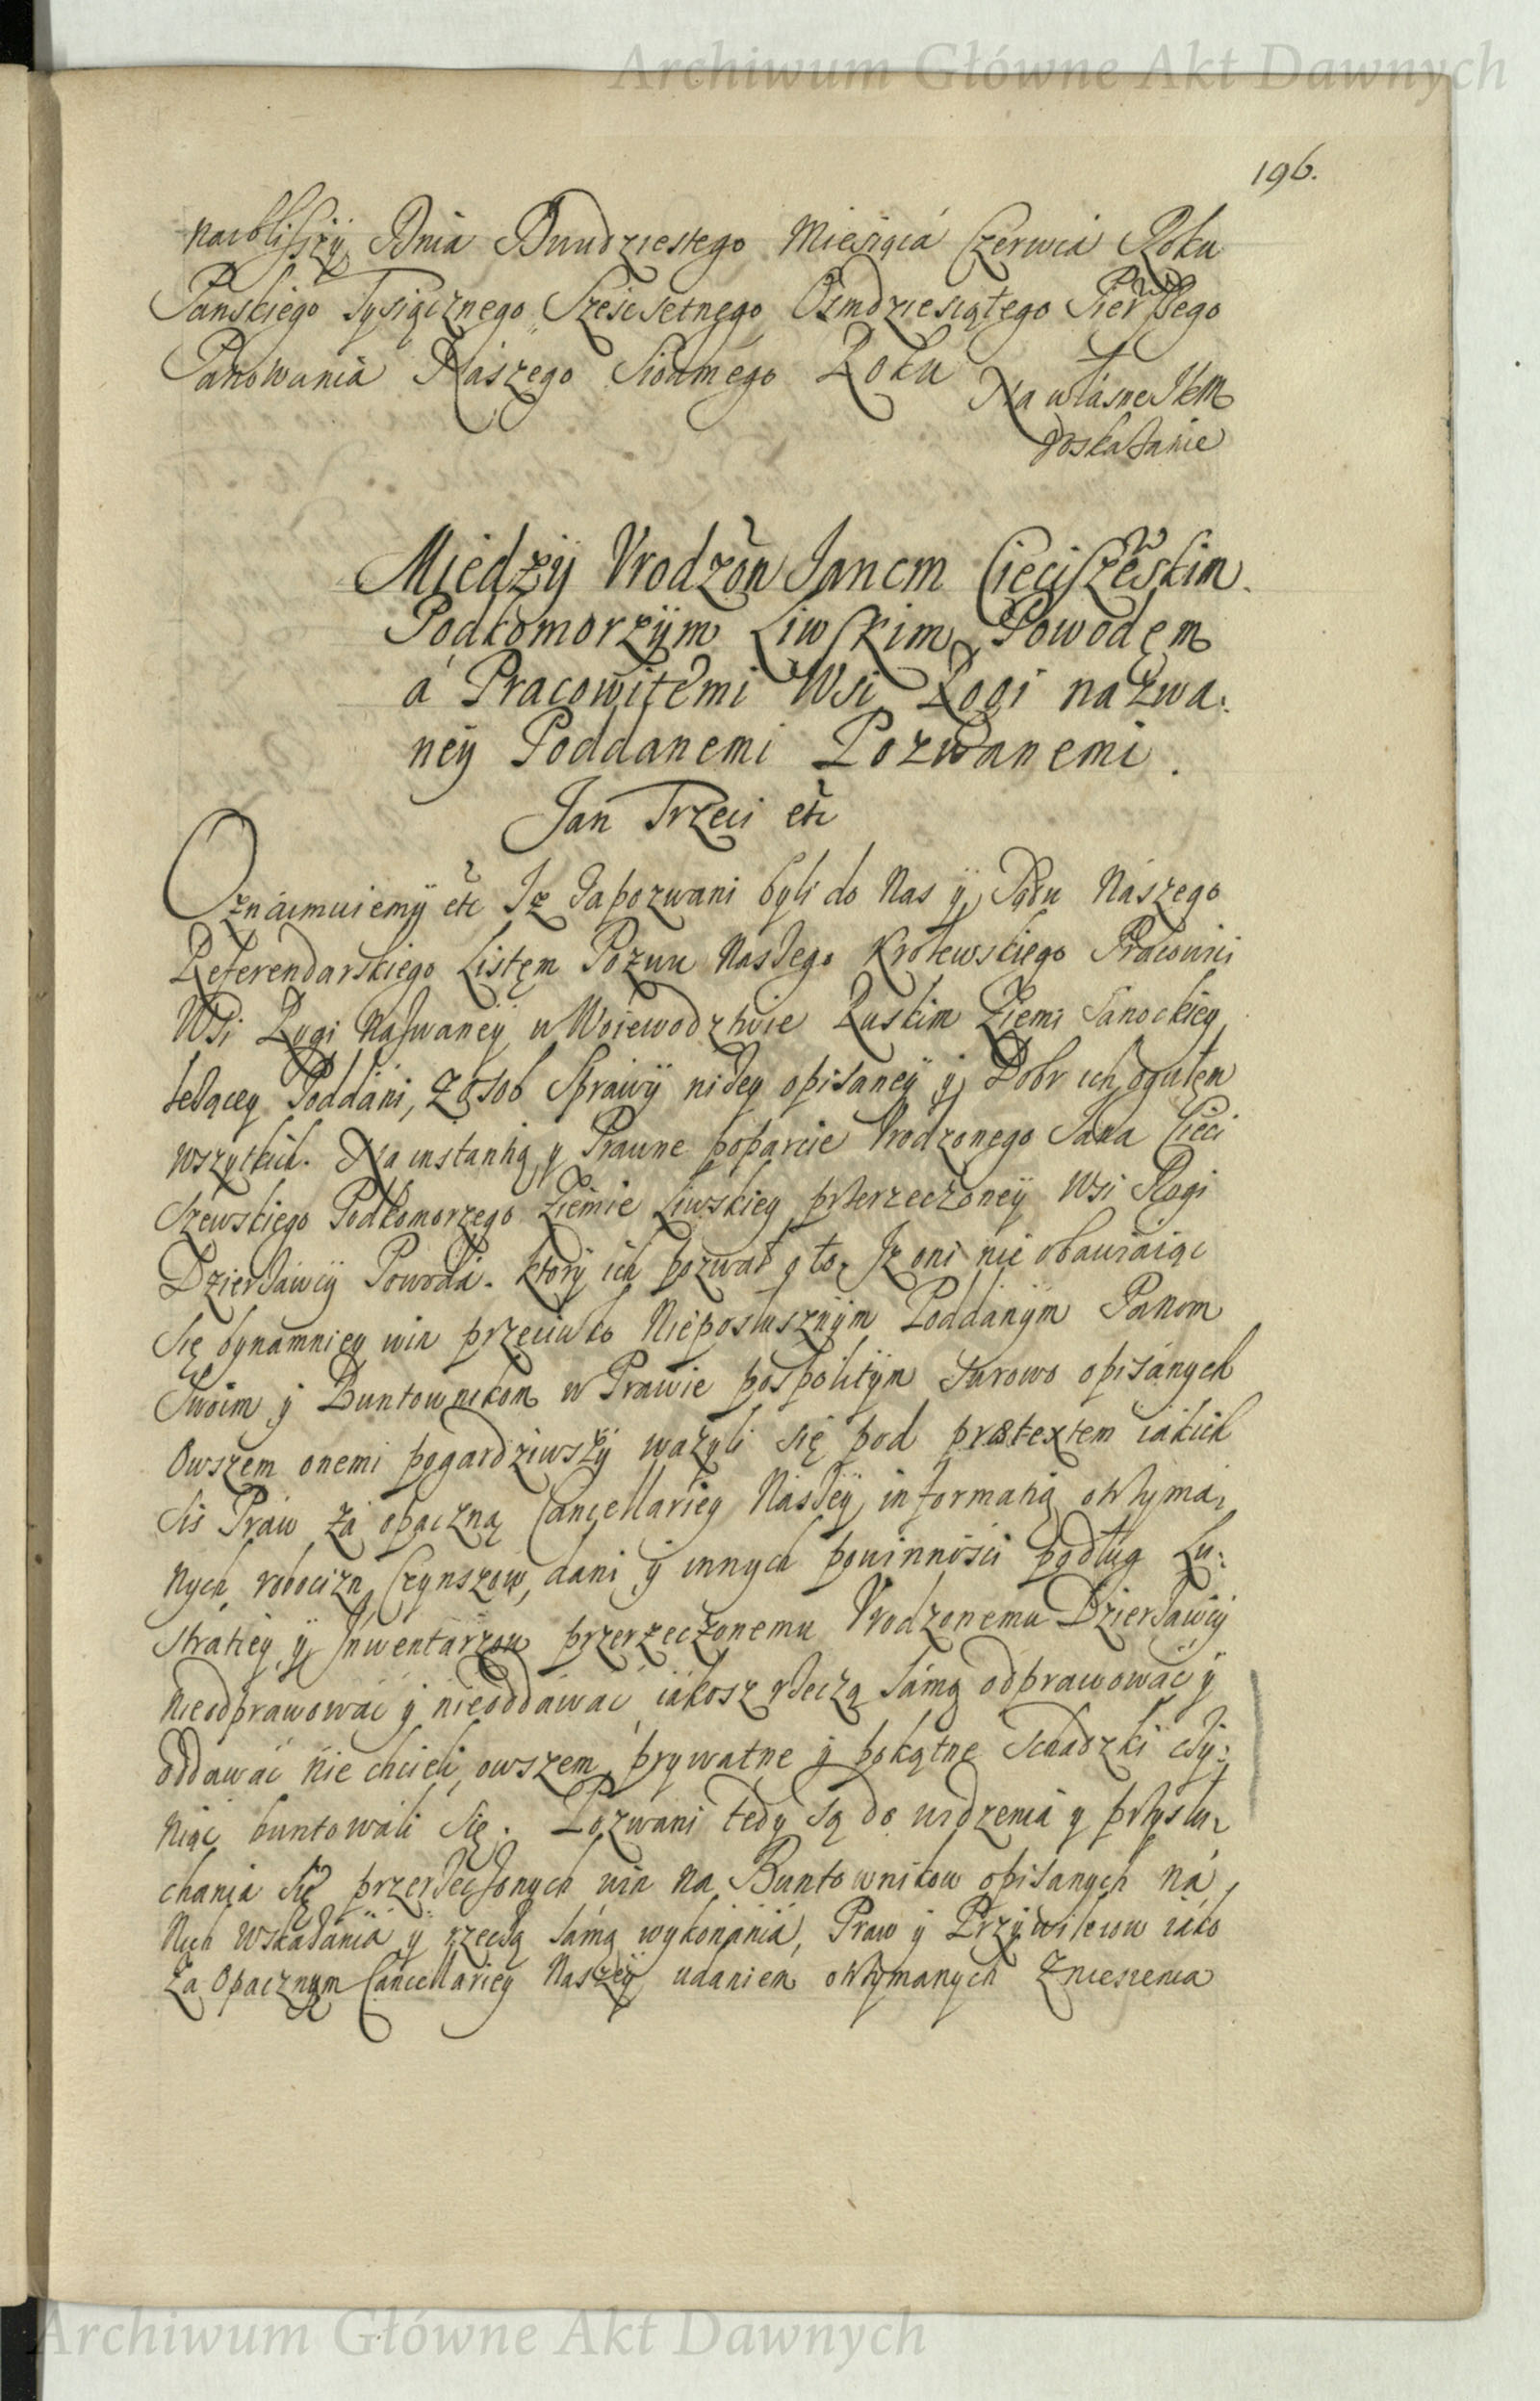 Archiwum Główne Akt Dawnych
196.
naiblisszy Dnia Dwudziestego Miesiąca Czerwca Roku
Panskiego Tysiącznego Szescsetnego Osmdziesiątego Pierwszego
Panowania Naszego Siodmego Roku Na własne JKM
roskazanie
Miedzÿ Vrodzon Janem Cieciszewskim
Podkomorzÿm Liwskim Powodęm
á Pracowitemi Wsi Rogi nazwa:
neÿ Poddanemi Pozwanemi.
Jan Trzeci etc
Oznaimuiemÿ etc Iz zapozwani byli do Nas ÿ Sądu Nászego
Referendarskiego Listęm Pozwu Naszego Krolewskiego Pracowici
Wsi Rogi Nazwaneÿ w Woiewodztwie Ruskim Ziemi Sanockiey
lezącey Poddáni, z osob Sprawÿ nizey opisaneÿ ÿ Dobr ich ogułem
wszytkich. Na instantią y Prawne poparcie Vrodzonego Jana Cieci
szewskiego Podkomorzego Ziemie Liwskiey przerzeczoneÿ Wsi Rogi
Dzierzawcÿ Powoda. ktorÿ ich pozwał o to. Iz oni nie obawiaiąc
się bynamniey win przeciwko Nieposłusznÿm Poddanÿm Panom
Swoim ÿ Buntownikom w Prawie pospolitÿm surowo opisánych
Owszem onemi pogardziwszÿ wazyli się pod prætextem iákich
sis Praw zá opaczną Cancellariey Naszeÿ informatią otrzyma,
nych, robocizn, Czynszow, dani ÿ innych powinnosci podług Lu:
stratiey ÿ Inwentarzow przerzeczonemu Vrodzonemu Dzierzawcÿ
nieodprawowáć ÿ nieoddáwáć iákosz rzeczą sámą odprawowáć ÿ
oddawáć nie chcieli, owszem prywatne ÿ pokątne schadzki czÿ:
niąc buntowali się. Pozwani tedy są do widzenia y przysłu,
chania się przerzeczonych win na Buntownikow opisanych ná
nich wskazániá ÿ rzeczą sámą wykonániá, Praw ÿ Przywileiow iáko
za opacznym Cancellariey Naszeÿ udaniem otrzymanych zniesienia
Archiwum Główne Akt Dawnych